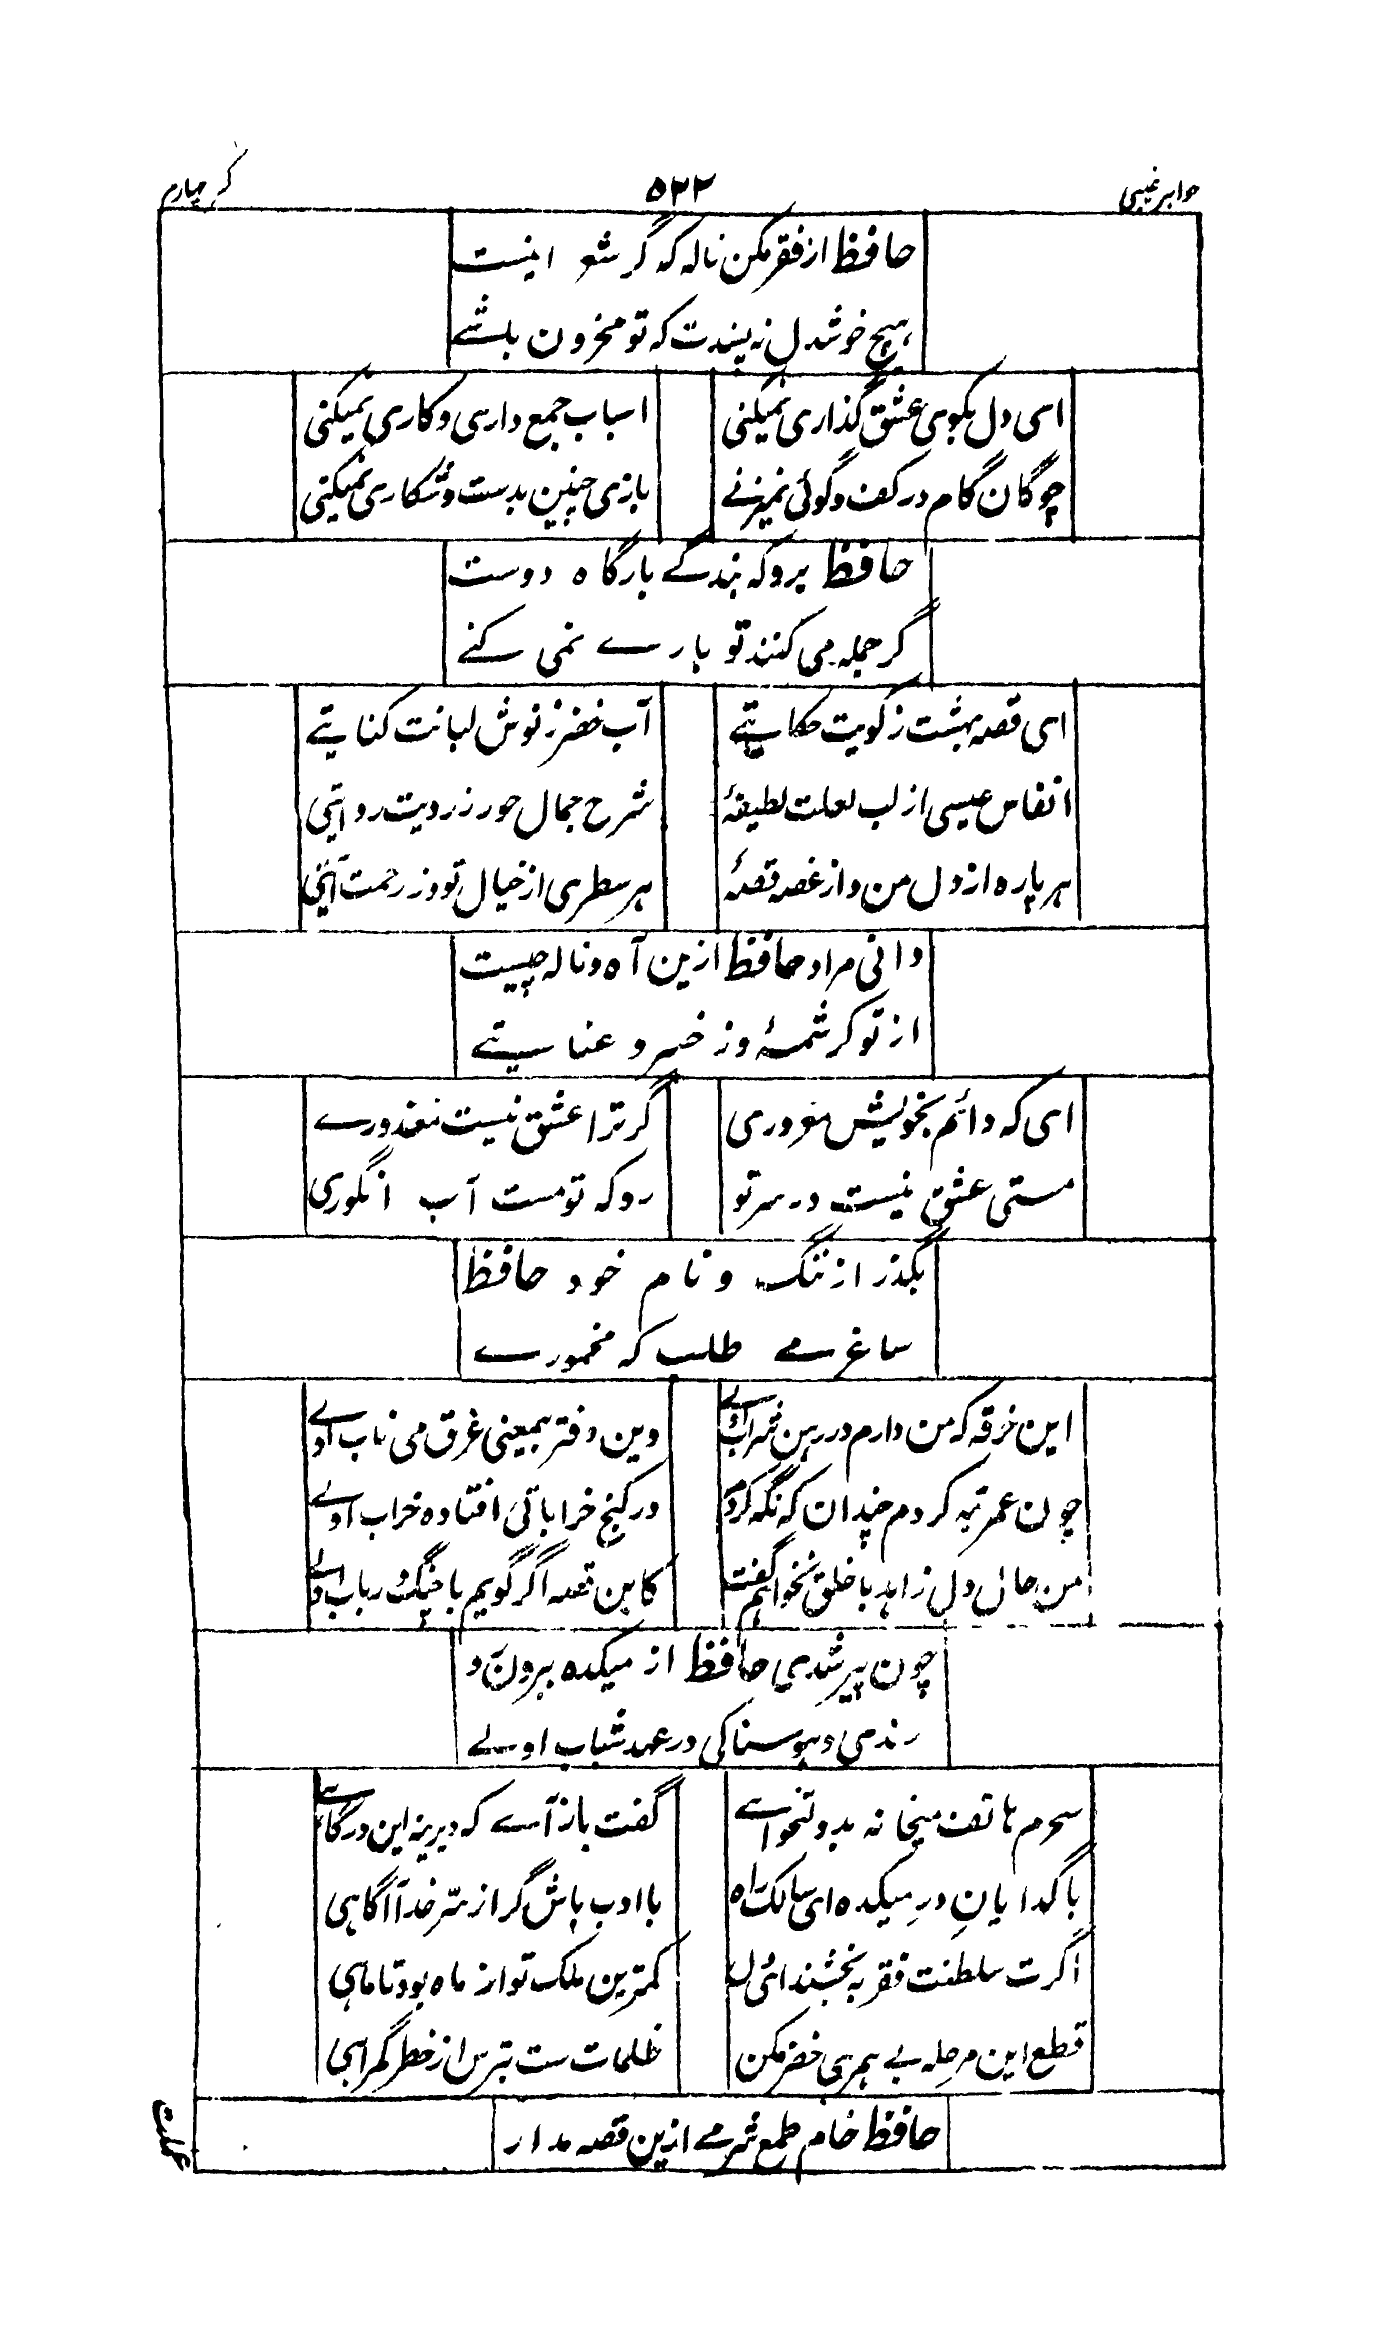 جواہر غیبی ۵۲۲ کر چہارم
حافظ از فقر مکن ناله که گر شعر اینست
ہیچ خوشدل نہ پسندت که تو محزون باشے
ای دل بکوی عشق گذاری نمیکنی اسباب جمع داری و کاری نمیکنی
چوگان گام در کف و گوئی نمیزنے بازی چنین بدست و شکاری نمیکنی
حافظ برو که بندگے بارگاہ دوست
گر جمله می کنند تو بارے نمی کنے
ای قصه بہشت ز کویت حکایتے آب خضر ز نوش لبانت کنایتے
انفاس عیسی از لب لعلت لطیفۂ شرح جمال حور ز رویت روایتی
ہر پاره از دل من و از غصه قصۂ ہر سطری از خیال تو وز رحمت آیتی
دانی مراد حافظ ازین آه و ناله چیست
از تو کرشمۂ وز خسرو عنایتے
ای که دائم بخویش مغروری گر ترا عشق نیست معذورے
مستی عشق نیست در سر تو رو که تو مست آب انگوری
بگذر از ننگ و نام خود حافظ
ساغر مے طلب که مخمورے
این خرقه که من دارم در رہن شراب اولے وین دفتر بیمعنی غرق می ناب اولے
چون عمر تبه کردم چندان که نگه کردم در کنج خراباتی افتاده خراب اولے
من حال دل زاہد با خلق نخواہم گفت کاین قصه اگر گویم با چنگ و رباب اولے
چون پیر شدی حافظ از میکده بیرون رو
رندی و ہوسناکی در عہد شباب اولے
سحرم ہاتف میخانه بدولتخواہے گفت باز آے که دیرینه این درگاہے
با گدایانِ درِ میکده ای سالک راه با ادب باش گر از سّر خدا آگاہی
اگرت سلطنت فقر به بخشند ائی دل کمترین ملک تو از ماه بود تا ماہی
قطع این مرحله بے ہمرہی خضر مکن ظلمات ست بترس از خطر گمراہی
حافظ خام طمع شرمے ازین قصه مدار
عملت